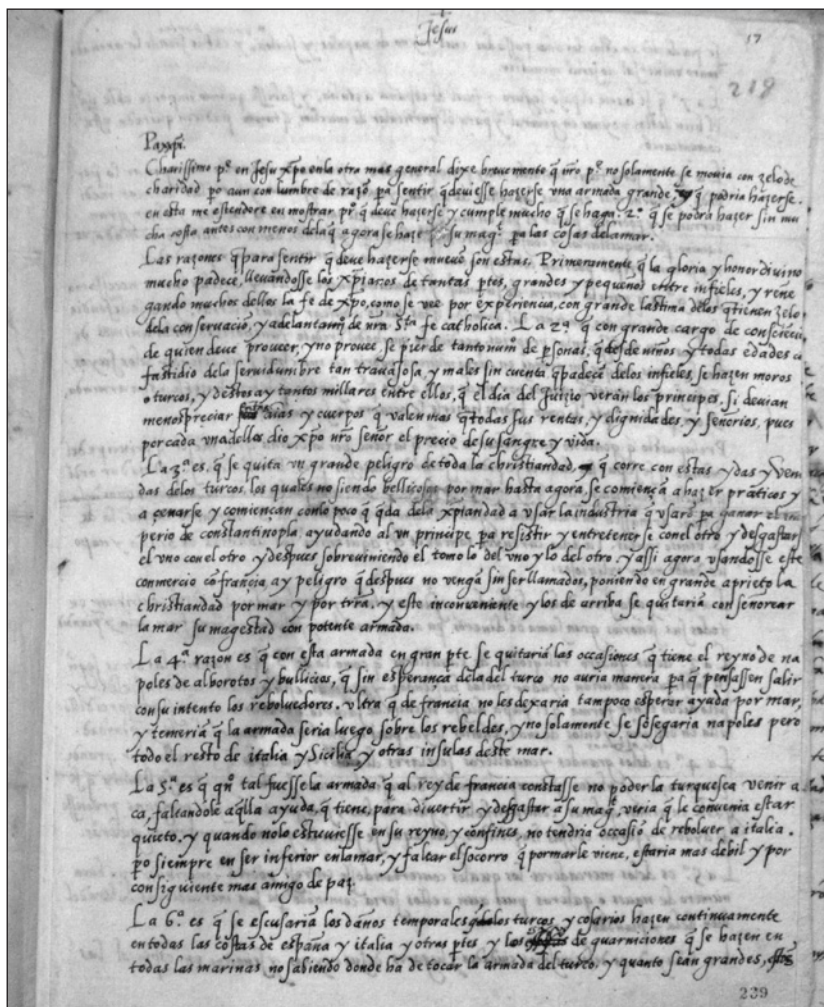 Jesus
17
218
Pax xpi.
Charissimo pᵉ. en Jesu xpo en la otra mas general dixe brevemente q̄ nr̄o pᵉ. no solamente se movia con zelo de
charidad pō aun con lumbre de razō. pa sentir q̄ deviesse hazerse vna armada grande, q̄ podria hazerse.
en esta me estendere en mostrar prº. q̄ deve hazerse y cumple mucho q̄ se haga. 2.º q̄ se podra hazer sin mu
cha costa, antes con menos de la q̄ agora se haze su magᵗ. pa las cosas de la mar.
Las razones q̄ para sentir q̄ deve hazerse mueve son estas. Primeramente, q̄ la gloria y honor divino
mucho padece, llevandosse los xpianos de tantas ptes, grandes y pequeños entre infieles, y rene
gando muchos dellos la fe de xpo, como se vee por experiencia, con grande lastima de los q̄ tienen zelo
de la conservaciō, y adelantamᵗº de nr̄a Stª fe catholica. La 2ª. q̄ con grande cargo de consciēcia
de quien deve proveer, y no provee, se pierde tanto numº de psonas, q̄ desde niños y todas edades
fastidio de la servidumbre tan travajosa, y males sin cuenta q̄ padecē delos infieles, se hazen moros
o turcos, y destos ay tantos millares entre ellos, q̄ el dia del Juizio veran los principes, si devian
menospreciar aīas y cuerpos q̄ valen mas q̄ todas sus rentas, y dignidades, y señorios, pues
por cada vna dellas dio xpo nrō señor el precio de su sangre y vida.
La 3.ª es, q̄ se quita vn grande peligro de toda la christiandad, q̄ corre con estas ydas y veni
das delos turcos, los quales no siendo bellicosos por mar hasta agora, se comiençā a hazer praticos y
a cenarse, y comiençan con lo poco q̄ q̄da dela xpiandad a usar la industria q̄ usarō pa ganar el im
perio de constantinopla, ayudando al vn principe pa resistir y entretenerse con el otro y desgastarse
el vno con el otro y despues sobreviniendo el tomo lo del vno y lo del otro. y assi agora usandosse este
commercio cō francia, ay peligro q̄ despues no vengā sin ser llamados, poniendo en grande aprieto la
christiandad por mar y por trr̄a. y este inconveniente y los de arriba se quitariā con señorear
la mar su magestad con potente armada.
La 4.ª razon es q̄ con esta armada en gran pte se quitariā las occasiones q̄ tiene el reyno de na
poles de alborotos y bullicios, q̄ sin esperança dela del turco no auria manera pa q̄ pensassen salir
con su intento los rebolvedores. vltra q̄ de francia no les dexaria tampoco esperar ayuda por mar,
y temeriā q̄ la armada seria luego sobre los rebeldes, y no solamente se sosegaria napoles pero
todo el resto de italia y Sicilia y otras insulas deste mar.
La 5.ª es q̄ qnº tal fuesse la armada q̄ al rey de francia constasse no poder la turquesca venir a
ca, faltandole aq̄lla ayuda, q̄ tiene, para divertir y desgastar a su magᵗ. veria q̄ le convenia estar
quieto. y quando no lo estuviesse en su reyno, y confines, no tendria occasiō de rebolver a italia.
pō siempre en ser inferior en la mar, y faltar el socorro q̄ por mar le viene, estaria mas debil y por
consiguiente mas amigo de paz.
La 6.ª es q̄ se escusariā los daños temporales los turcos, y cosarios hazen continuamente
en todas las costas de españa y italia y otras ptes y los de guarniciones q̄ se hazen en
todas las marinas no sabiendo donde ha de tocar la armada del turco. y quanto seān grandes, estos
239